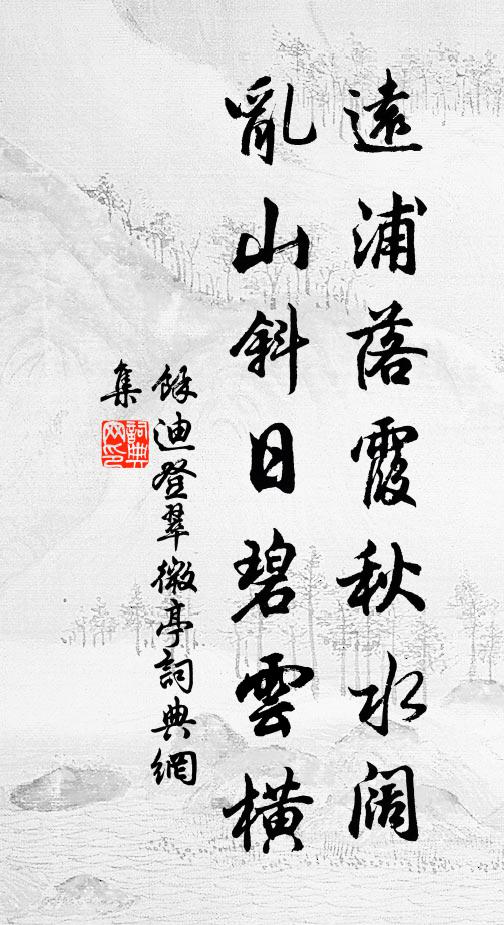 遠浦落霞秋水阔
亂山斜日碧雲橫
餘迪登翠微亭詞典網
集
詞典网印